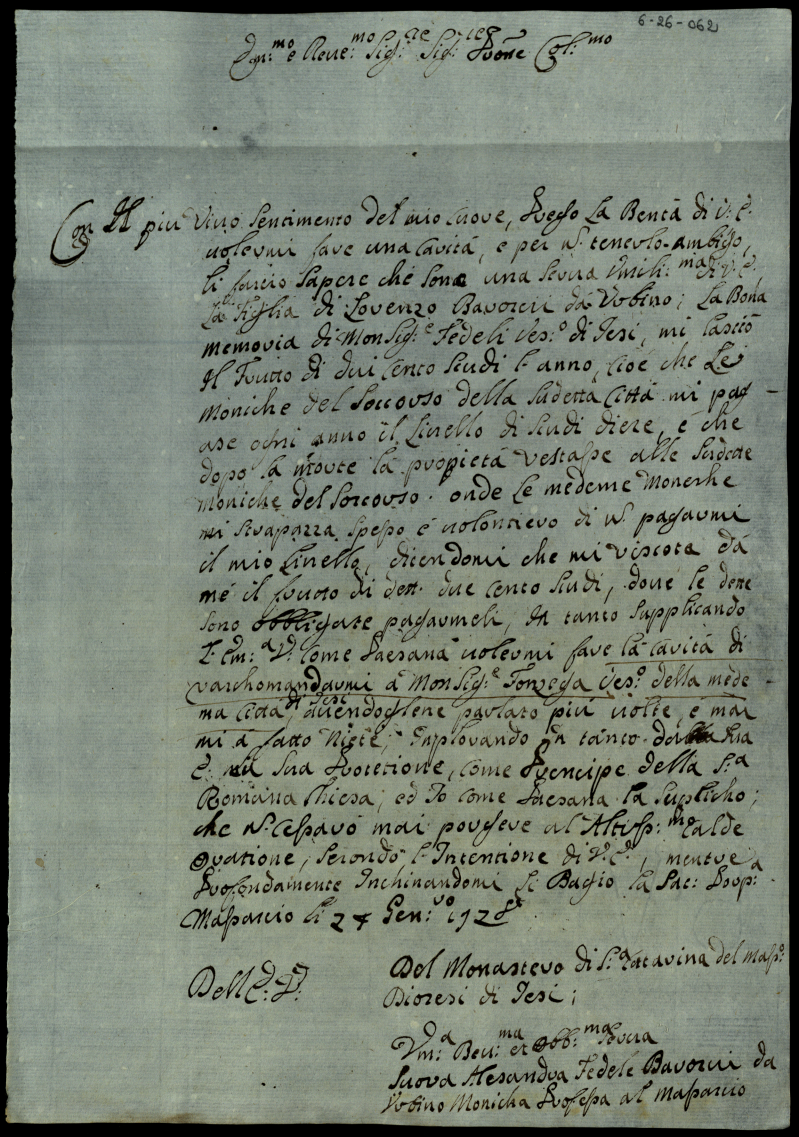 6-26-062
Em:mo e Reve:mo Sig:re Sig:re Prone Col:mo
Con Il piu vivo sentimento del mio core, Prego la Bontà di V: E:
volermi fare una carità, e per n: tenerlo ambigo,
li faccio sapere che sono una serva umili:ma di V: E:
la figlia di Lorenzo Barocci da Urbino; la Bona
memoria di MonSig:e Fedeli Ves:o di Jesi, mi lasciò
Il frutto di dui cento scudi l'anno, cioè che Le
Moniche del Soccorso della sudetta Città mi pag-
ase ogni anno il Livello di scudi diece, e che
dopo la morte la propietà restasse alle sudette
Moniche del Soccorso. onde le medeme Moneche
mi strapazza spesso è volontiero di n: pagarmi
il mio Livello, dicendomi che mi riscota da
mé il frutto di dett: due cento scudi, dove le dette
sono obbligate pagarmeli, In tanto supplicando
l' Em:a V: come Paesana volermi fare la carità di
rarchomandarmi a MonSig:e Fonzega Ves:o della mede
ma Città di Jesi, avendoglene parlato più volte, e mai
mi à fatto niete; Inplorando In tanto dalla sua
E: la sua Protetione, come Prencipe della S:a
Romana Chiesa; ed Io come Paesana la suplicho;
che n: cessarò mai porgere al Altiss:mo calde
oratione, secondo l'Intentione di V: E:, mentre
Profondamente Inchinandomi li Bagio la Sac: Porp:a
Massaccio li 24 Gen:ro 1728
Dell' E: V:
Del Monastero di S:a Catarina del Mass:o
Diocesi di Jesi;
Um:a Dev:ma et Obb:ma serva
Suora Alesandra Fedele Barocci da
Urbino Monicha Professa al Massaccio